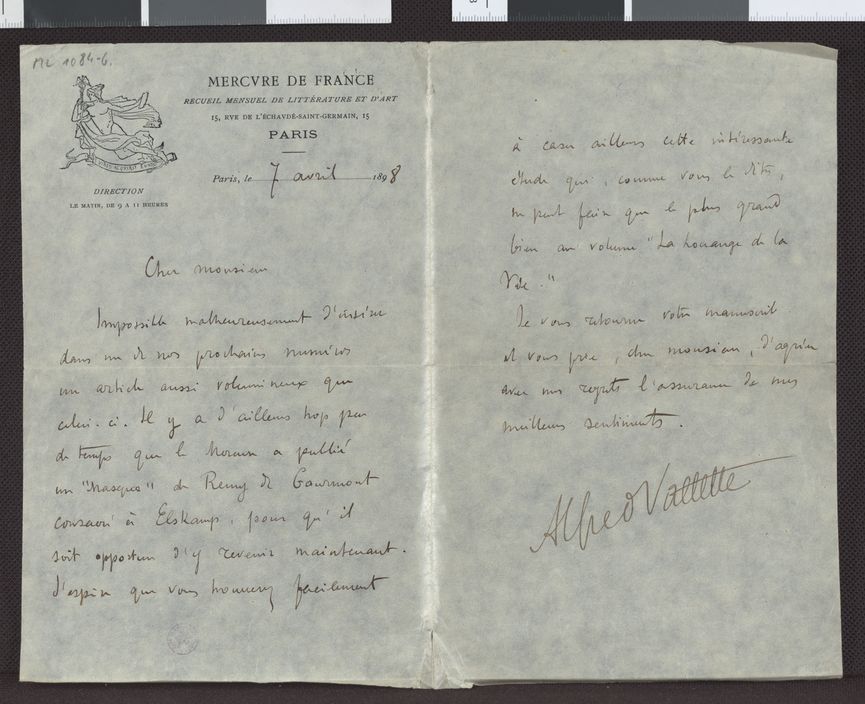 ML 1084-6.
MERCVRE DE FRANCE
RECUEIL MENSUEL DE LITTÉRATURE ET D'ART
15, RVE DE L'ÉCHAVDÉ-SAINT-GERMAIN, 15
PARIS
Paris, le 7 avril 1898
DIRECTION
LE MATIN, DE 9 A 11 HEURES
Cher monsieur
Impossible malheureusement d'insérer
dans un de nos prochains numéros
un article aussi volumineux que
celui-ci. Il y a d'ailleurs trop peu
de temps que le Mercure a publié
un "Masque" de Remy de Gourmont
consacré à Elskamp, pour qu'il
soit opportun d'y revenir maintenant.
J'espère que vous trouverez facilement
à caser ailleurs cette intéressante
étude qui, comme vous le dites,
ne peut faire que le plus grand
bien au volume "La Louange de la
Vie."
Je vous retourne votre manuscrit
et vous prie, cher monsieur, d'agréer
avec mes regrets l'assurance de mes
meilleurs sentiments.
Alfred Vallette